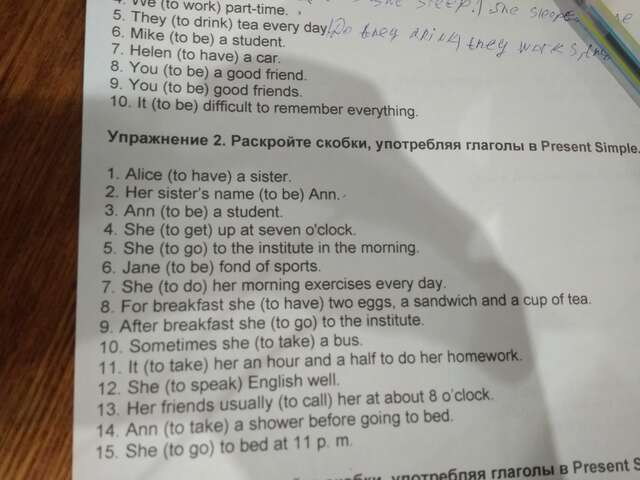 4. We (to work) part-time.
5. They (to drink) tea every day. Do they drink they works
6. Mike (to be) a student.
7. Helen (to have) a car.
8. You (to be) a good friend.
9. You (to be) good friends.
10. It (to be) difficult to remember everything.
Упражнение 2. Раскройте скобки, употребляя глаголы в Present Simple.
1. Alice (to have) a sister.
2. Her sister's name (to be) Ann.
3. Ann (to be) a student.
4. She (to get) up at seven o'clock.
5. She (to go) to the institute in the morning.
6. Jane (to be) fond of sports.
7. She (to do) her morning exercises every day.
8. For breakfast she (to have) two eggs, a sandwich and a cup of tea.
9. After breakfast she (to go) to the institute.
10. Sometimes she (to take) a bus.
11. It (to take) her an hour and a half to do her homework.
12. She (to speak) English well.
13. Her friends usually (to call) her at about 8 o'clock.
14. Ann (to take) a shower before going to bed.
15. She (to go) to bed at 11 p. m.
скобки, употребляя глаголы в Present S